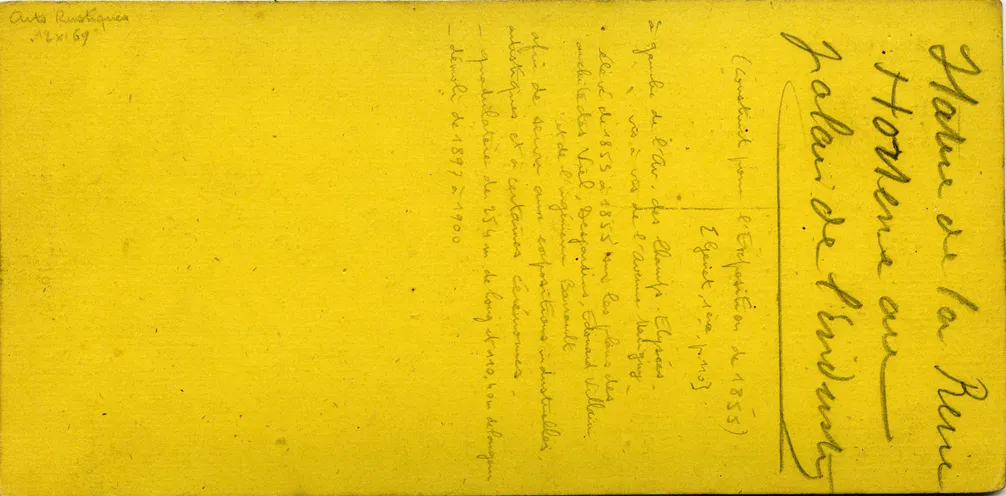 Statue de la Reine
Hortense au
Palais de l'Industrie
(construit pour l'Exposition de 1855)
à gauche de l'Av. des Champs-Elysées -
vis à vis de l'avenue Marigny -
élevé de 1853 à 1855 sur les plans des
architectes Viel, Desjardins, Edouard Villain
et de l'ingénieur Barrault
afin de servir aux expositions industrielles,
artistiques et à certaines cérémonies -
- quadrilatère de 254 m de long et 110,40 m de largeur
- démoli de 1897 à 1900
Arts Rustiques
12 XI 69